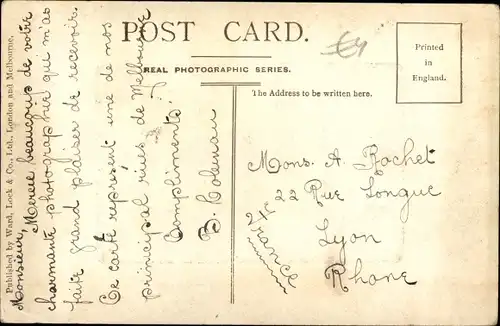 POST CARD.
REAL PHOTOGRAPHIC SERIES.
The Address to be written here.
Printed
in
England.
Published by Ward, Lock & Co., Ltd., London and Melbourne.
Monsieur,
Mercie beaucoup de votre
charmante photographie qui m'as
faite grand plaiser de recevoir.
Ce carte représent une de nos
principal rues de Melbourne
Compliments.
Mons. A. Rochet
22 Rue Longue
Lyon
Rhone
France